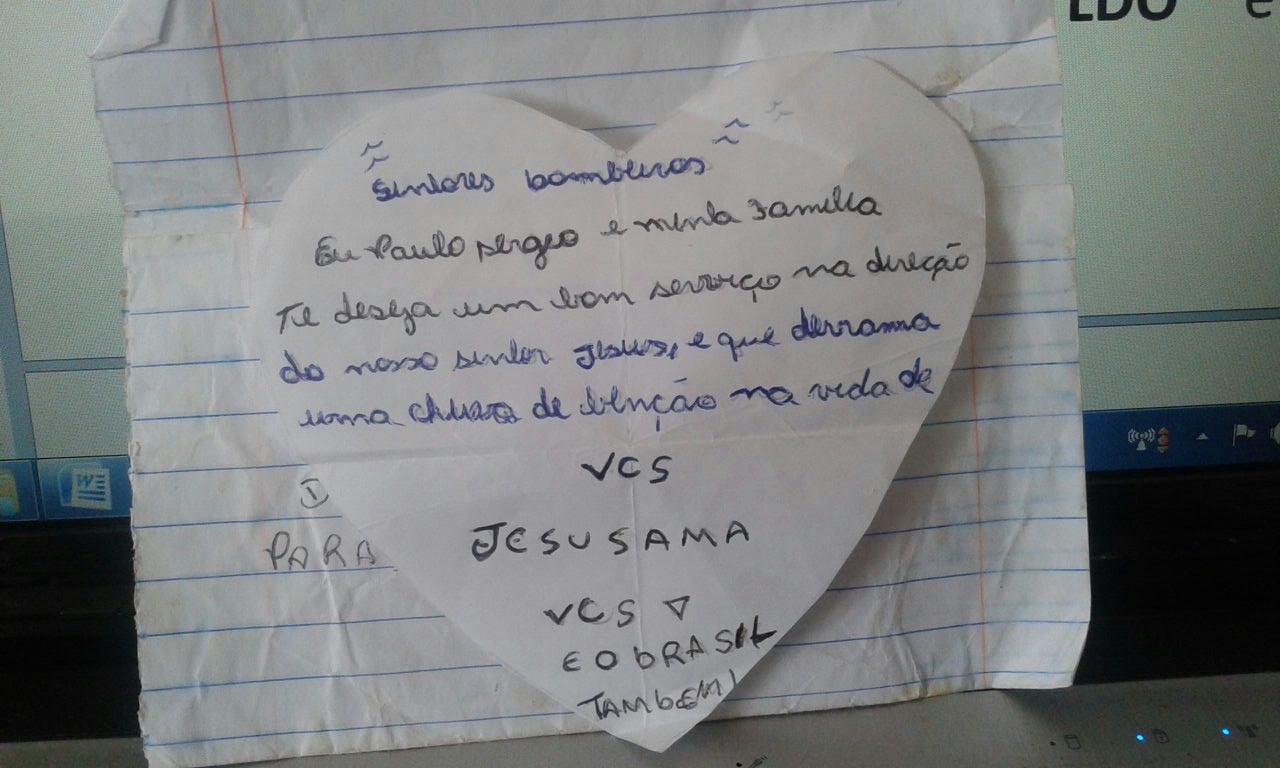 LDO e
Senhores bombeiros
Eu Paulo sergio e minha familia
Te deseja um bom serviço na direção
do nosso senhor Jesus, e que derrama
uma chuva de benção na vida de
VCS
JESUS AMA
VCS
E O bRASIL
TAMbEM!
PARA